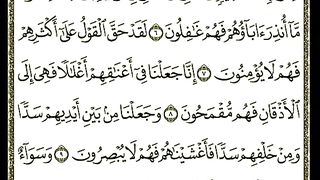 مَّآ أُنذِرَ ءَابَآؤُهُمْ فَهُمْ غَٰفِلُونَ ٦ لَقَدْ حَقَّ ٱلْقَوْلُ عَلَىٰٓ أَكْثَرِهِمْ
فَهُمْ لَا يُؤْمِنُونَ ٧ إِنَّا جَعَلْنَا فِىٓ أَعْنَٰقِهِمْ أَغْلَٰلًا فَهِىَ إِلَى
ٱلْأَذْقَانِ فَهُم مُّقْمَحُونَ ٨ وَجَعَلْنَا مِنۢ بَيْنِ أَيْدِيهِمْ سَدًّا
وَمِنْ خَلْفِهِمْ سَدًّا فَأَغْشَيْنَٰهُمْ فَهُمْ لَا يُبْصِرُونَ ٩ وَسَوَآءٌ